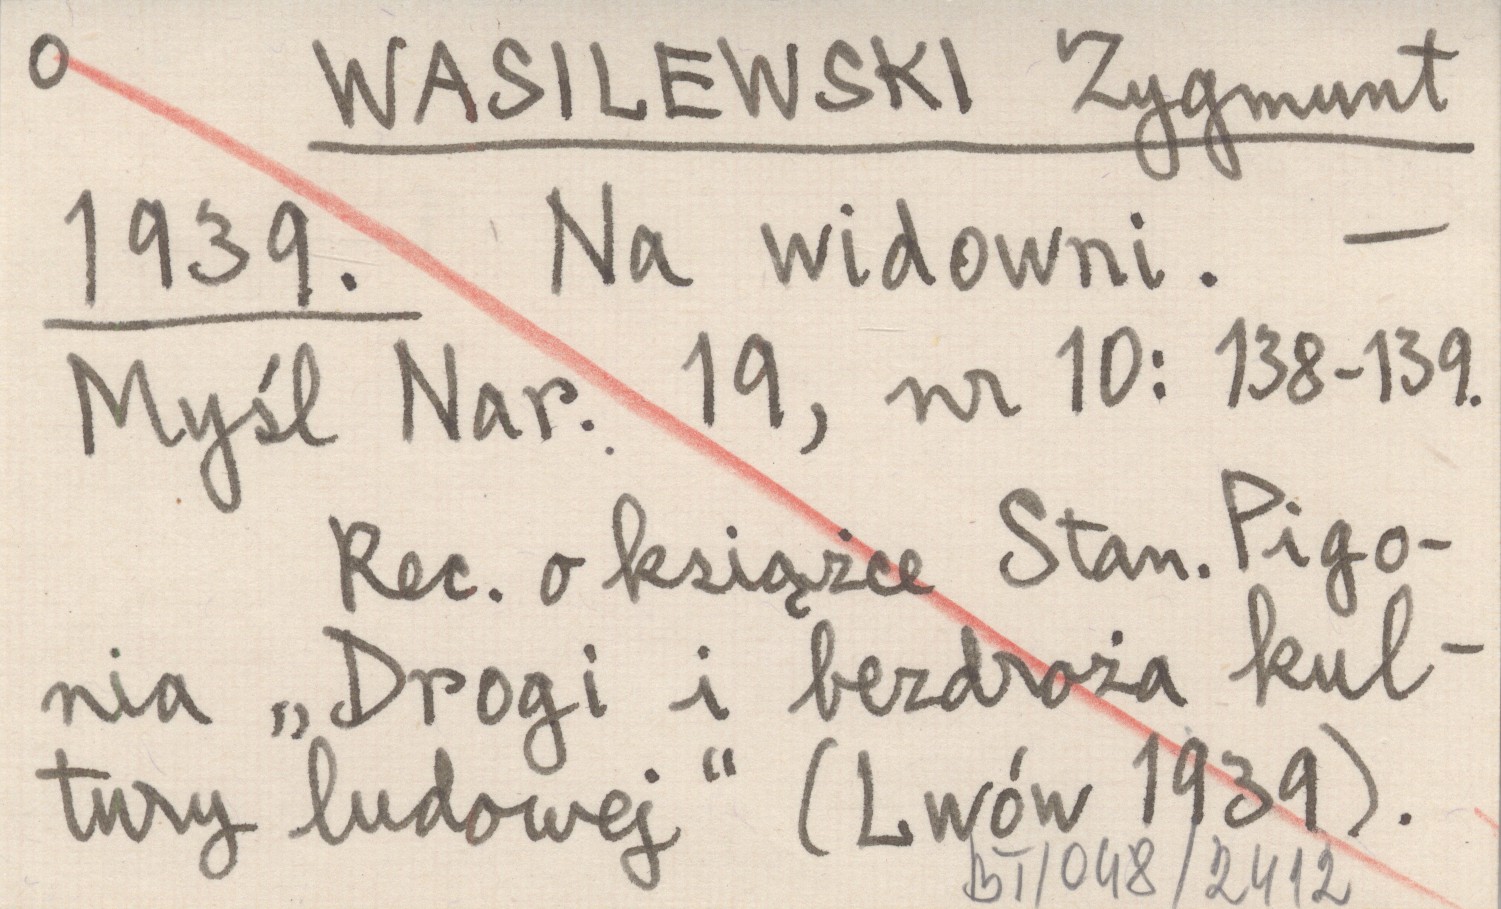 o WASILEWSKI Zygmunt
1939. Na widowni. —
Myśl Nar. 19, nr 10: 138-139.
Rec. o książce Stan. Pigo-
nia „Drogi i bezdroża kul-
tury ludowej“ (Lwów 1939).
BI/048/2412